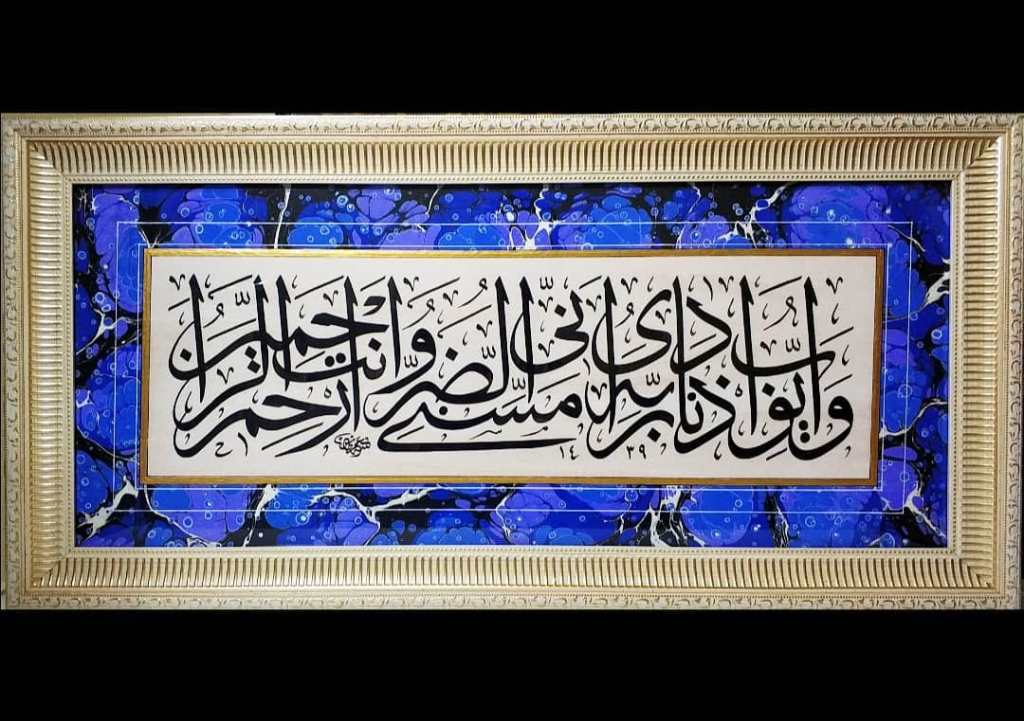 وَأَيُّوبَ إِذْ نَادَىٰ رَبَّهُ أَنِّي مَسَّنِيَ الضُّرُّ وَأَنتَ أَرْحَمُ الرَّاحِمِينَ
١٤٣٩